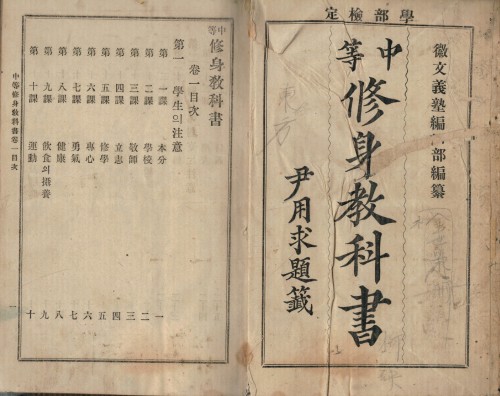 學部檢定
徽文義塾編 部編纂
中等 修身敎科書
尹用求題籤
中等 修身敎科書
卷一目次
第一 學生의注意
第一課 本分 一
第二課 學校 二
第三課 敬師 三
第四課 立志 四
第五課 修學 五
第六課 專心 六
第七課 勇氣 七
第八課 健康 八
第九課 飮食의攝養 九
第十課 運動 十
中等修身敎科書卷一目次 一